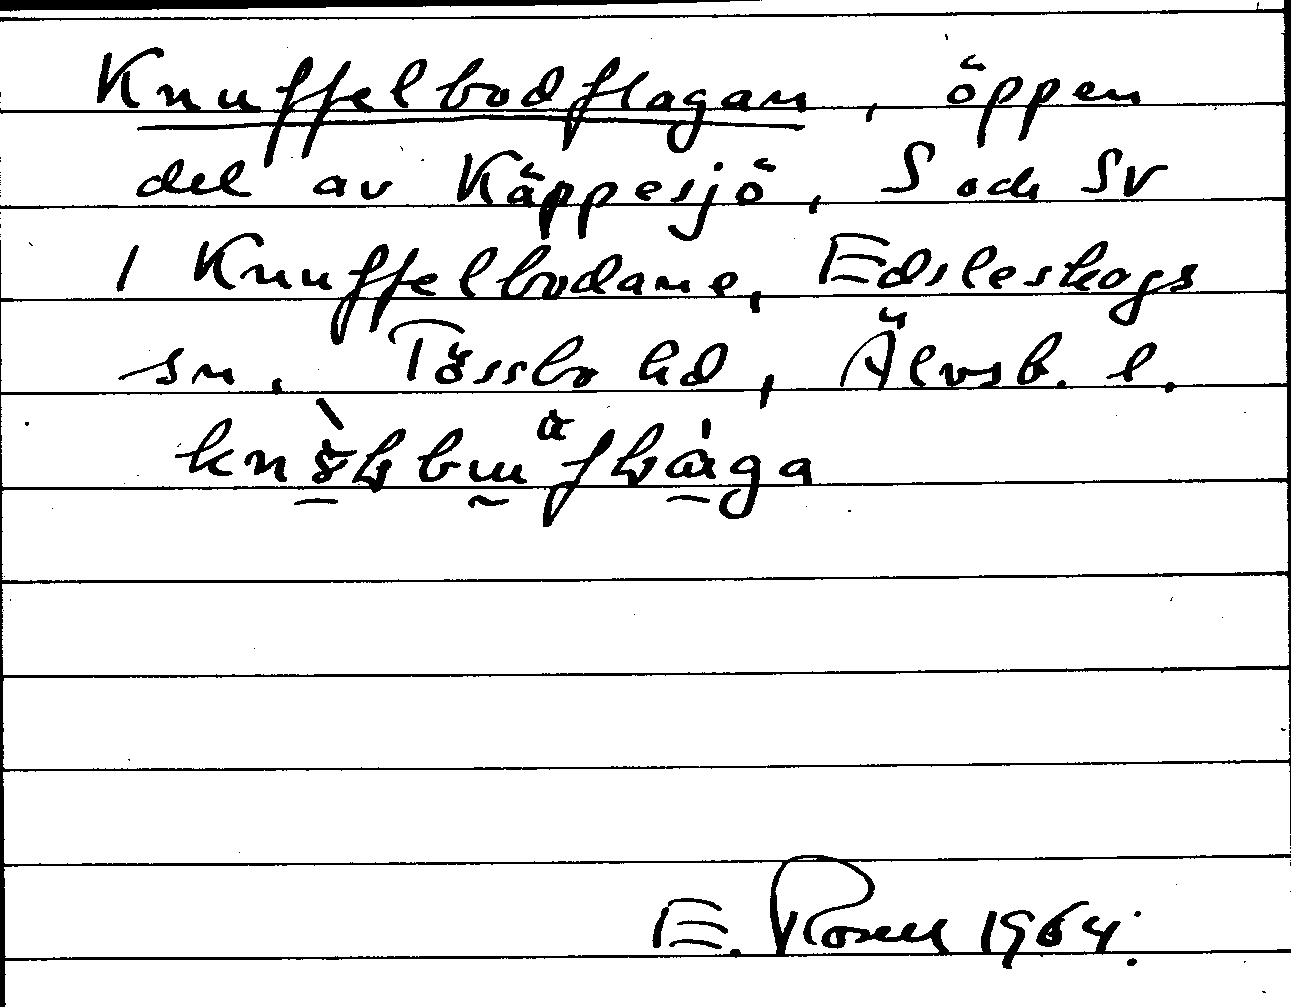 Knuffelbodflagan, öppen
del av Käppesjö, S och SV
i Knuffelbodane, Edsleskogs
sn. Tössbo hd, Älvsb. l.
E. Rosell 1964.